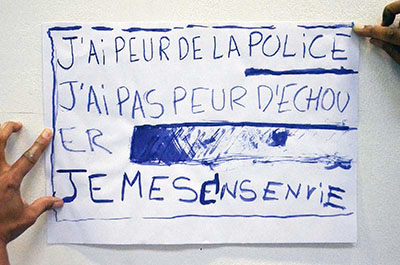 J'Ai PEUR DE LA POLICE
J'Ai PAS PEUR D'ECHOU
ER
JE ME SENS EN VIE